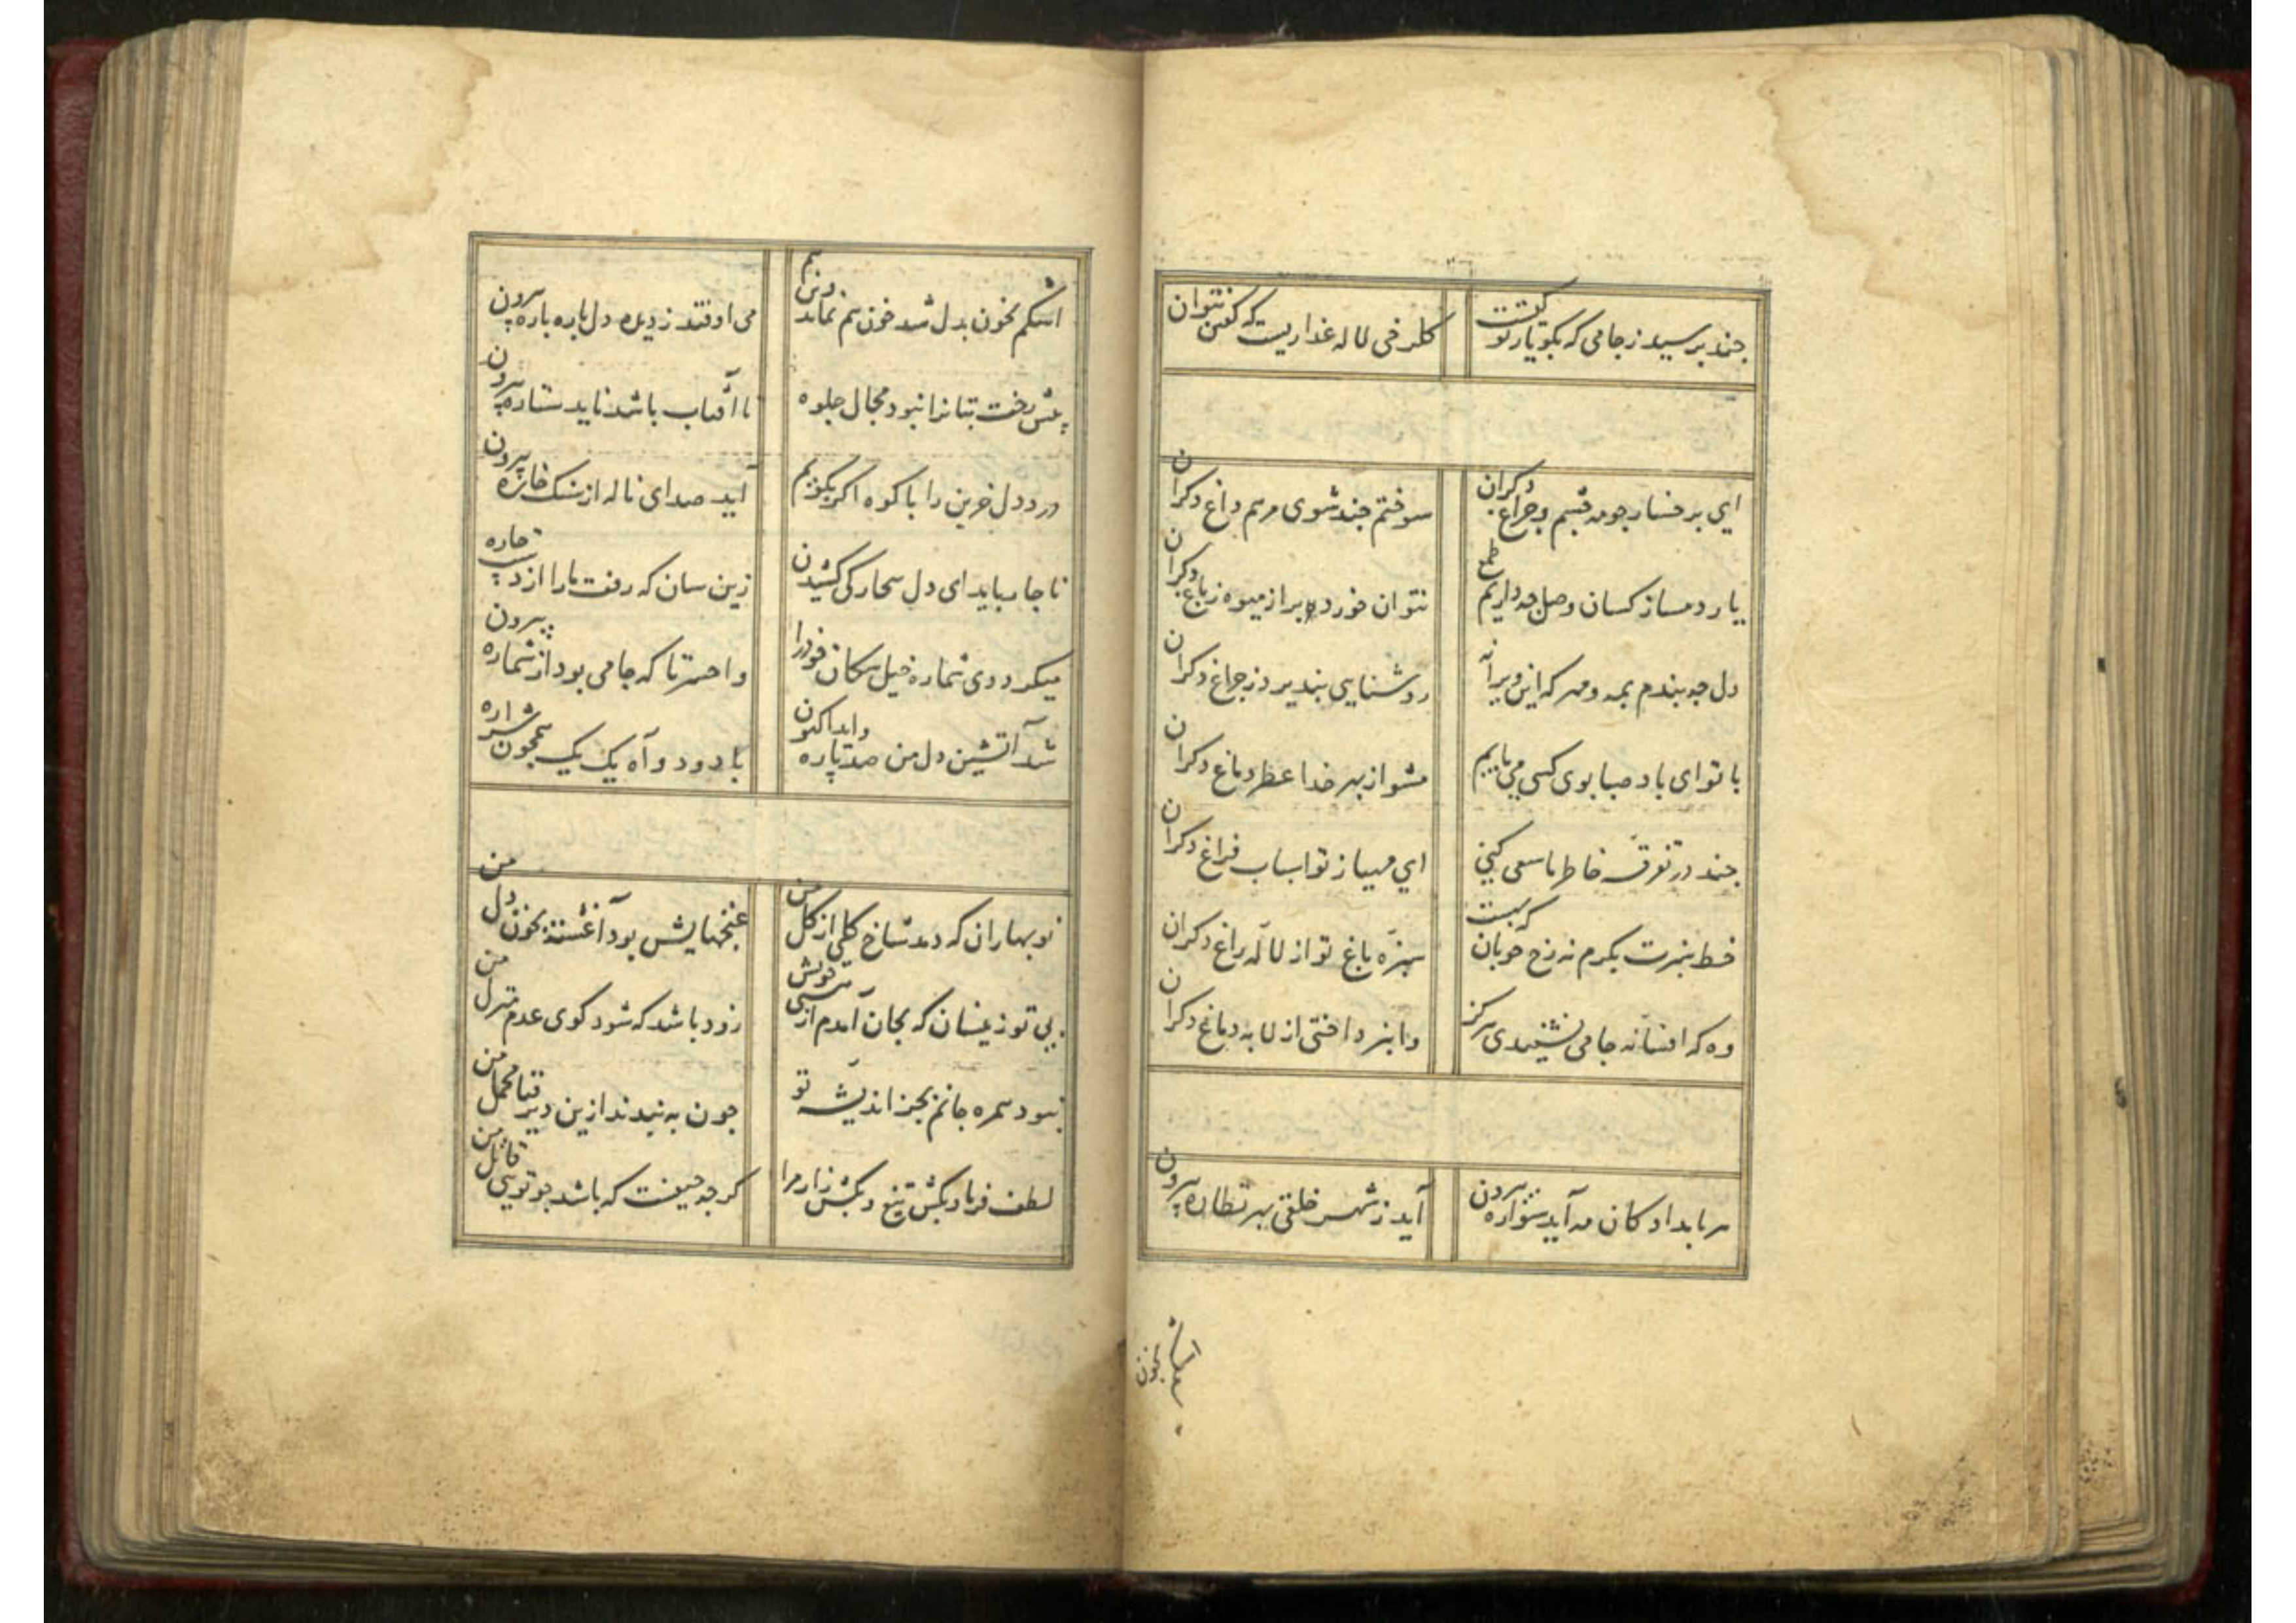 چند پرسید ز جامی که بگو یار تو کیست
گلرخی لاله عذاریست که گفتن نتوان
ای برخسار چو مه چشم و چراغ دکران
سوختم چند شوی مرهم داغ دکران
یار دمساز کسان وصل چه داریم طمع
نتوان خورد بر از میوه ز باغ دکران
دل چه بندم بمه و مهر که این ویرانه
روشنایی نپذیرد ز چراغ دکران
با تو ای باد صبا بوی کسی می یابیم
مشو از بهر خدا عطر دماغ دکران
چند در تفرقه خاطر ما سعی کنی
ای مهیا ز تو اسباب فراغ دکران
خط سبزت نکرم نه رخ خوبان که بست
سبزه باغ تو از لاله راغ دکران
وه که افسانه جامی نشنیدی هرکز
وا نپرداختی از لابه دماغ دکران
هر بامدادکان مه آید سواره بیرون
آید ز شهر خلقی بهر نظاره بیرون
اشکم بخون
اشکم بخون بدل شد خون هم نماند و ترسم
می اوفتد ز دیده دل پاره پاره بیرون
پیش رخت بتانرا نبود مجال جلوه
تا آفتاب باشد ناید ستاره بیرون
درد دل حزین را با کوه اکر بکویم
آید صدای ناله از سنک خاره بیرون
ناچار باید ای دل بیچارکی کشیدن
زین سان که رفت ما را از دست چاره بیرون
میکرد دی شماره خیل سکان خود را
واحسرتا که جامی بود از شماره بیرون
شد آتشین دل من صد پاره واید اکنون
با دود و آه یک یک همچون شراره
نوبهاران که دمد شاخ کلی از کل من
غنچهایش بود آغشته بخون دل من
بی تو زینسان که بجان آمدم از هستی خویش
زود باشد که شود کوی عدم منزل من
نبود همره جانم بجز اندیشه تو
چون به بندند ازین دیر فنا محمل من
لطف فرما و بکش تیغ و بکش زار مرا
کر چه حیفست که باشد چو تویی قاتل من